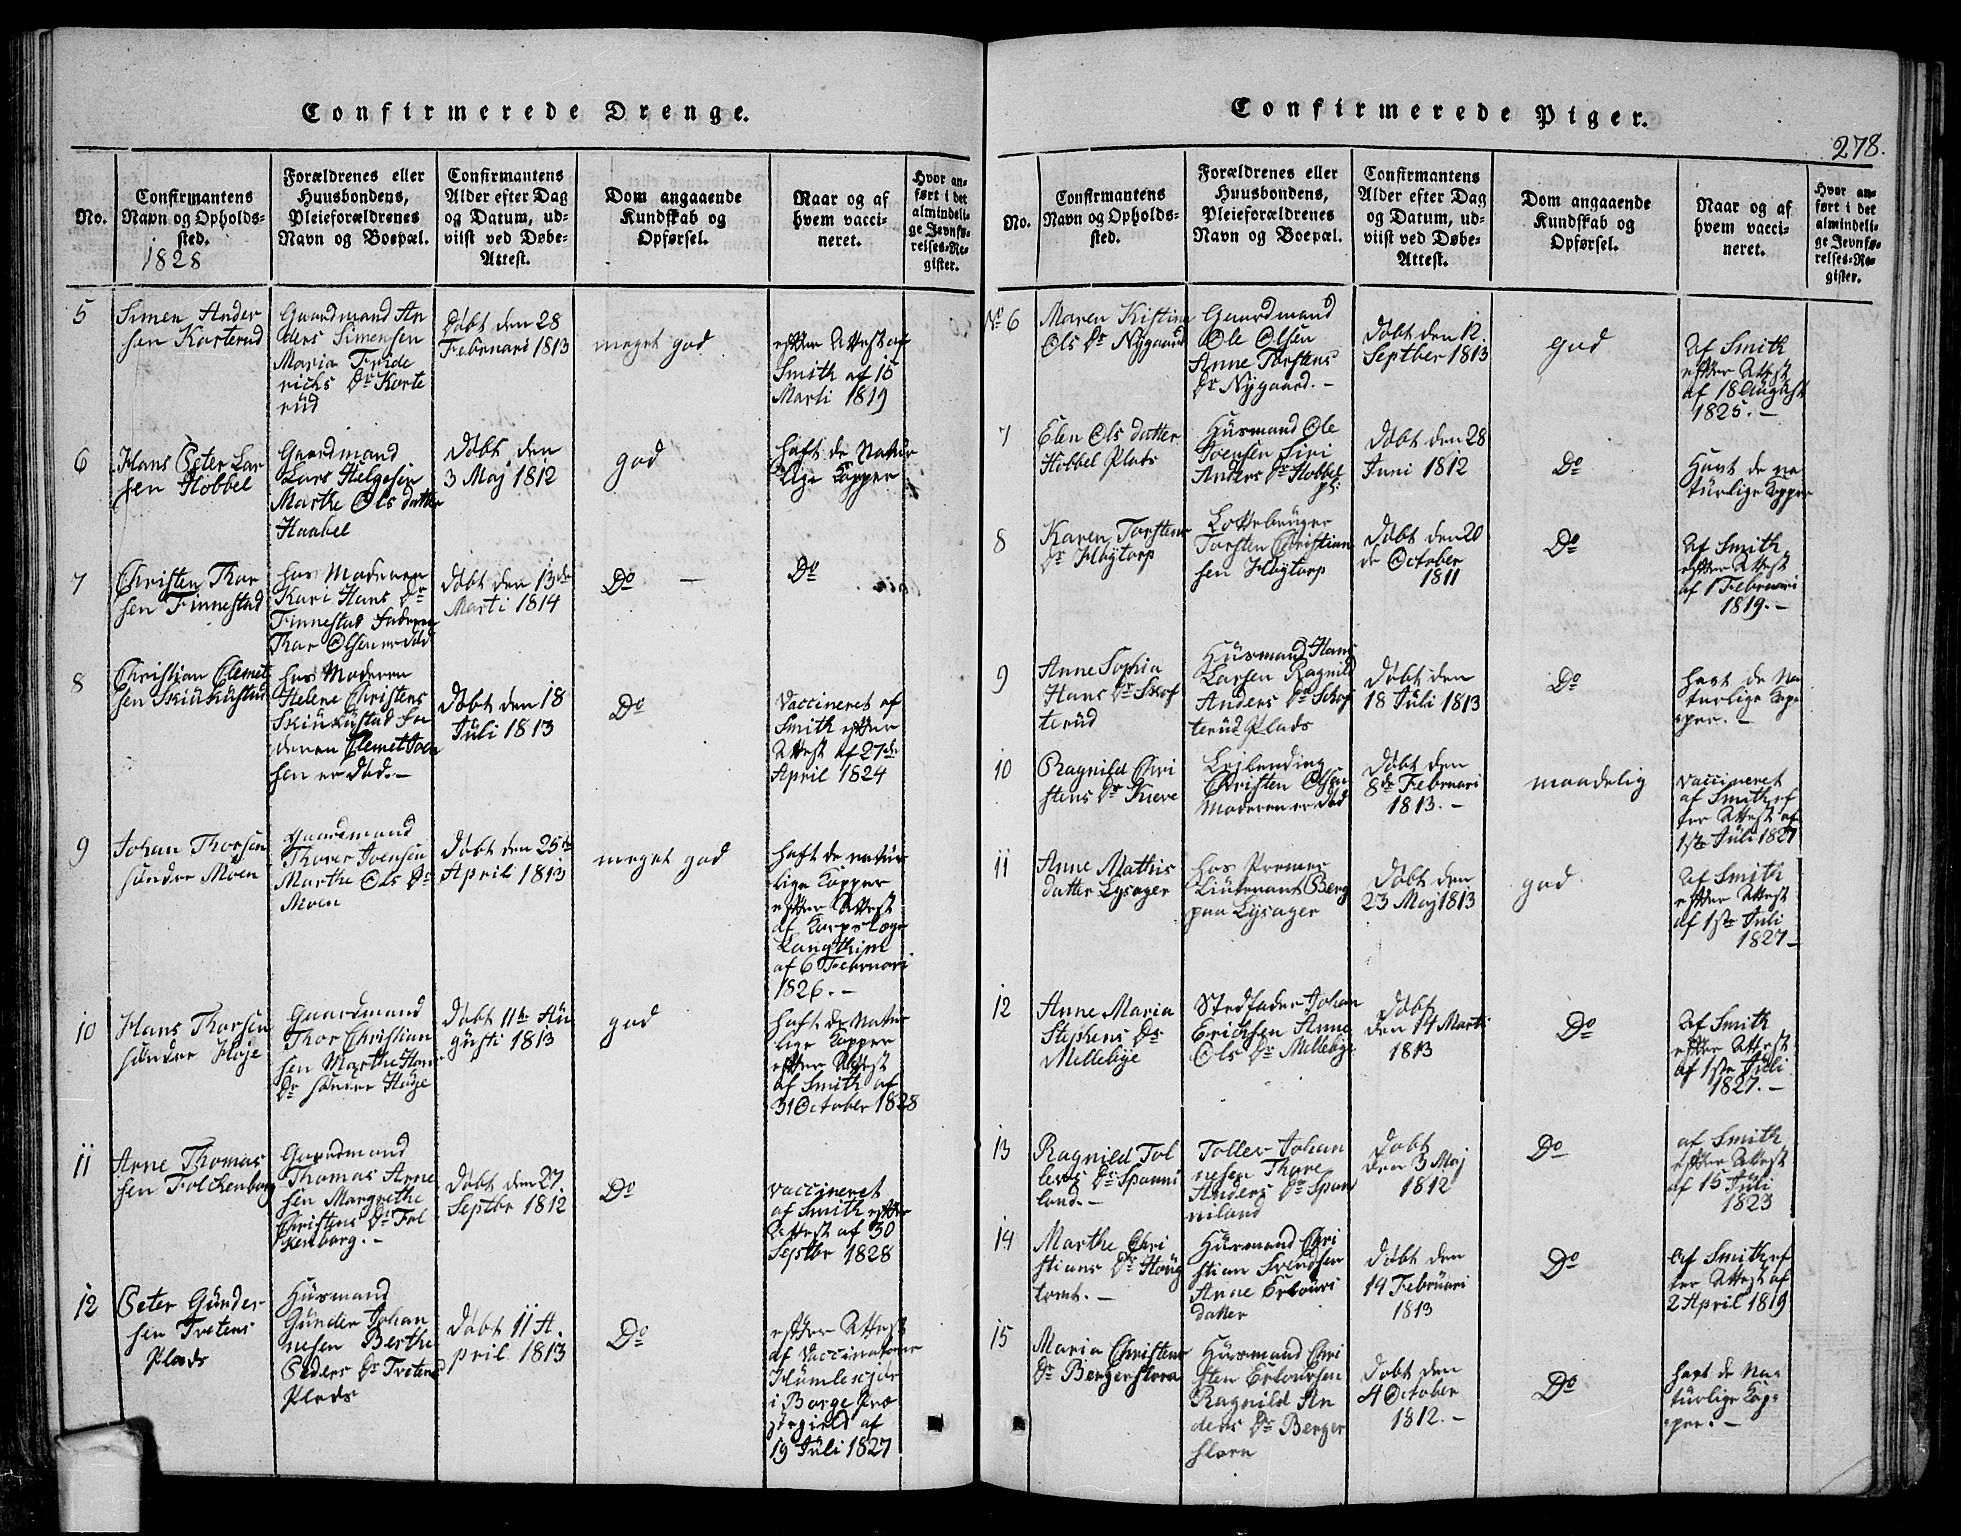 Confirmerede Drenge.
No.
Confirmantens
Navn og Opholds-
sted.
1828
Forældrenes eller
Huusbondens,
Pleieforældrenes
Navn og Boepæl.
Confirmantens
Alder efter Dag
og Datum, ud-
viist ved Døbe-
Attest.
Dom angaaende
Kundskab og
Opførsel.
Naar og af
hvem vacci-
neret.
Hvor an-
ført i det
almindeli-
ge Jevnfø-
relses-Re-
gister.
5
Simen Ander
sen Karterud
Gaardmand An
ders Simensen
Maria Fride
richs Dr Karte
rud
Døbt den 28
Februari 1813
meget god
efter Attest af
Smith af 15
Marti 1819
6
Hans Peter Lar
sen Hobbel
Gaardmand
Lars Helgesen
Marthe Ols datter
Haabel
Døbt den
3 Maj 1812
god
haft de Natur
lige Kopper
7
Christen Thor
sen Finnestad
hos Moderen
Kari Hans Dr
Finnestad faderen
Thor Olsen er død
Døbt den 13de
Marti 1814
Do —
Do
8
Christian Clemet
sen Skinkustad
hos Moderen
Helene Christens
Skinkustad Fa
deren Clemet Joen
sen er død. —
Døbt den 18
Juli 1813
Do
Vaccineret af
Smith efter
Attest af 27de
April 1824
9
Johan Thorsen
søndre Moen
Gaardmand
Thorer Joensen
Marthe Ols Dr
Moen
Døbt den 25de
April 1813
meget god
haft de natur
lige Kopper
efter Attest
af Korpslæge
Langthim
af 6 Februari
1826. —
10
Hans Thorsen
søndre Høje
Gaardmand
Thor Christian
sen Marthe Hans
Dr søndre Høje
Døbt 11te Au
gusti 1813
god
haft de Natur
lige Kopper
efter Attest
af Smith af
31 October 1828
11
Arne Thomas
sen Folckenborg
Gaardmand
Thomas Arne
sen Margrethe
Christens Dr Fol
kenborg. —
Døbt den 27.
Septbr 1812
Do
vaccineret
af Smith efter
Attest af 30
Septbr 1828
12
Peter Gunder
sen Tvetens
Plads
Husmand
Gunder Johan
nesen Berthe
Peders Dr Tvetens
Plads
Døbt 11 A.
pril 1813
Do
efter Attest
af Vaccinateur
Humlekjær
i Borge Præ
stegield af
19 Juli 1827
Confirmerede Piger.
278.
No.
Confirmantens
Navn og Opholds-
sted.
Forældrenes eller
Huusbondens,
Pleieforældrenes
Navn og Boepæl.
Confirmantens
Alder efter Dag
og Datum, ud-
viist ved Døbe-
Attest.
Dom angaaende
Kundskab og
Opførsel.
Naar og af
hvem vacci-
neret.
Hvor an-
ført i det
almindeli-
ge Jevnfø-
relses-Re-
gister.
No 6
Maren Kistine
Ols Dr Nygaard
Gaardmand
Ole Olsen
Anne Torstens
Dr Nygaard. —
Døbt den 12.
Septber 1813
god
Af Smith
efter Attest
af 18 August
1825. —
7
Elen Ols datter
Hobbel Plads
Husmand Ole
Joensen Siri
Anders Dr Hobbel
pl:
Døbt den 28
Juni 1812
Do
Havt de na
turlige Kopper
8
Karen Torstens
Dr Høytorp
Lottebruger
Torsten Christian
sen Høytorp
Døbt den 20
de October
1811
Do
Af Smith
efter Attest
af 1 Februari
1819. —
9
Anne Sophia
Hans Dr Skof
terud
Husmand Hans
Larsen Ragnild
Anders Dr Skof
terud Plads
Døbt den
18 Juli 1813
Do
havt de Na
turlige Kop-
per. —
10
Ragnild Chri
stens Dr Kieve
Leilending
Christen Olsen
Moderen er død
Døbt den
8de Februari
1813. —
maadelig
vaccineret
af Smith ef
ter Attest af
1ste Juli 1827
11
Anne Mathis
datter Lysager
hos Premier
Liutenant Berg
paa Lysager
Døbt den
23 Maj 1813
god
Af Smith
efter Attest
af 1ste Juli
1827 —
12
Anne Maria
Stephens Dr
Millebye
Stedfader Johan
Erichsen Anne
Ols Dr Millebye
Døbt
den 14 Marti
1813
Do
Af Smith
efter Attest
af 1ste Juli
1827. —
13
Ragnild Tol
levs Dr Spanni
land. —
Tollev Johan
nesen Thore
Anders Dr Span
niland
Døbt
den 3 Maj
1812
Do
af Smith
efter Attest
af 15 Juli
1823
14
Marthe Chri
stians Dr Houg
tomt. —
Husmand Chri
stian Svendsen
Anne Erlouri
datter
Døbt den
14 Februari
1813
Do
Af Smith ef
ter Attest af
2 April 1819
15
Maria Christens
Dr Bergerfloen
Husmand Chri
sten Erlouesen
Ragnild An
ders Dr Berger
floen
Døbt den
4 October
1812. —
Do
havt de Na-
turlige Kop-
per. —